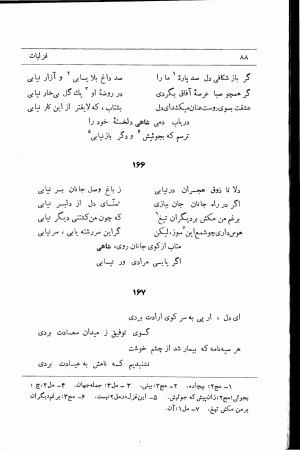 ۸۸
غزلیات
گر باز شکافی دل صد پارهٔ ۱ ما را صد داغ بلا یابی ۲ و آزار نیابی
گر همچو صبا عرصهٔ آفاق بگردی در روضهٔ او ۳ یك گل بی‌خار نیابی
عشقت بسوی روستعنان میکشدای‌دل بشتاب، که لایقتر از این کار نیابی
دریاب دمی شاهی دلخستهٔ خود را
ترسم که بجوئیش ۴ و دگر بازنیابی۵
۱۶۶
دلا تا ذوق هجران درنیابی ز باغ وصل جانان بر نیابی
اگر در راه جانان جان ببازی تمنّای دل از دلبر نیابی
برغم من مکش بر دیگران تیغ۶ که چون من‌کشتنی دیگر نیابی
هوس‌داری‌چو‌شمع‌این۷ سوز، لیکن گر‌این سررشته یابی ، سر نیابی
متاب از کوی جانان روی، شاهی
اگر یابی مرادی ور نیابی
۱۶۷
ای دل ، ار پی به سر کوی ارادت بردی
گوی توفیق ز میدان سعادت بردی
هر سیه‌نامه که بیمار شد از چشم خوشت
نشنیدیم که نامش به عیادت بردی
۱ـ مج۲: بیچاره. ۲ـ مج۲: بینی. ۳ـ مل۲: جمله‌جهان. ۴ـ مل۲؛ج ؛
بجوئی(مج۲:ز‌ان‌پیش‌که جوئیش. ۵ـ این‌غزل‌در‌مل۲نیست. ۶ـ مج۲: برغم‌دیگران
بر من مکش تیغ. ۷ـ مل۱: آن.